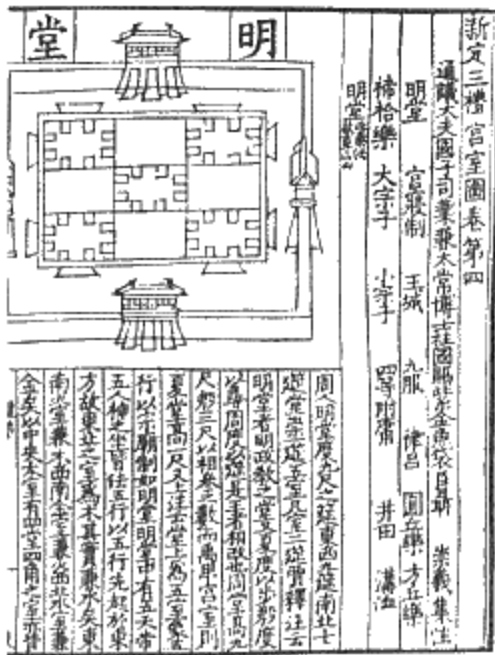 新定三禮宮室圖卷第四
通議大夫國子司業兼太常博士柱國賜紫金魚袋臣聶 崇義集注
明堂 宮寢制 王城 九服 律呂 圜丘樂 方丘樂
禘祫樂 大宗子 小宗子 四等附庸 井田 溝洫
明堂
明堂
周人明堂度九尺之筵東西九筵南北七
筵堂崇一筵五室凡室二筵賈釋注云
明堂者明政教之堂又夏度以步殷度
以尋周度以筵是王者相改也周堂高九
尺殷三尺以相參之數而禹卑宮室則
夏堂高一尺又上注云堂上為五室象五
行以宗廟制如明堂明堂中有五天帝
五人神之坐皆法五行以五行先起於東
方故東北之室為木其實兼水矣東
南火室兼木西南金室兼火西北水室兼
金矣以中央太室有四堂四角之室亦皆